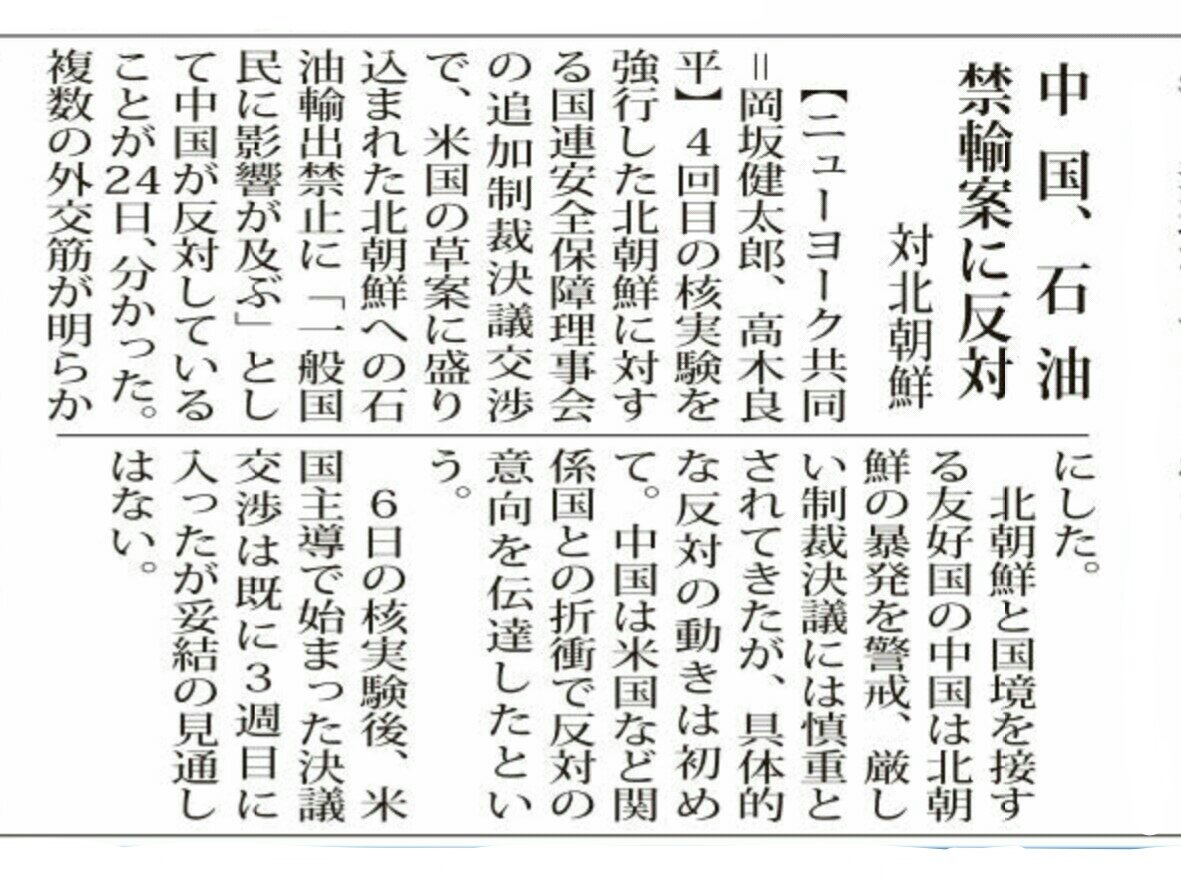 中国、石油
禁輸案に反対
対北朝鮮
【ニューヨーク共同
=岡坂健太郎、高木良
平】4回目の核実験を
強行した北朝鮮に対す
る国連安全保障理事会
の追加制裁決議交渉
で、米国の草案に盛り
込まれた北朝鮮への石
油輸出禁止に「一般国
民に影響が及ぶ」とし
て中国が反対している
ことが24日、分かった。
複数の外交筋が明らか
にした。
北朝鮮と国境を接す
る友好国の中国は北朝
鮮の暴発を警戒、厳し
い制裁決議には慎重と
されてきたが、具体的
な反対の動きは初め
て。中国は米国など関
係国との折衝で反対の
意向を伝達したとい
う。
6日の核実験後、米
国主導で始まった決議
交渉は既に3週目に
入ったが妥結の見通し
はない。